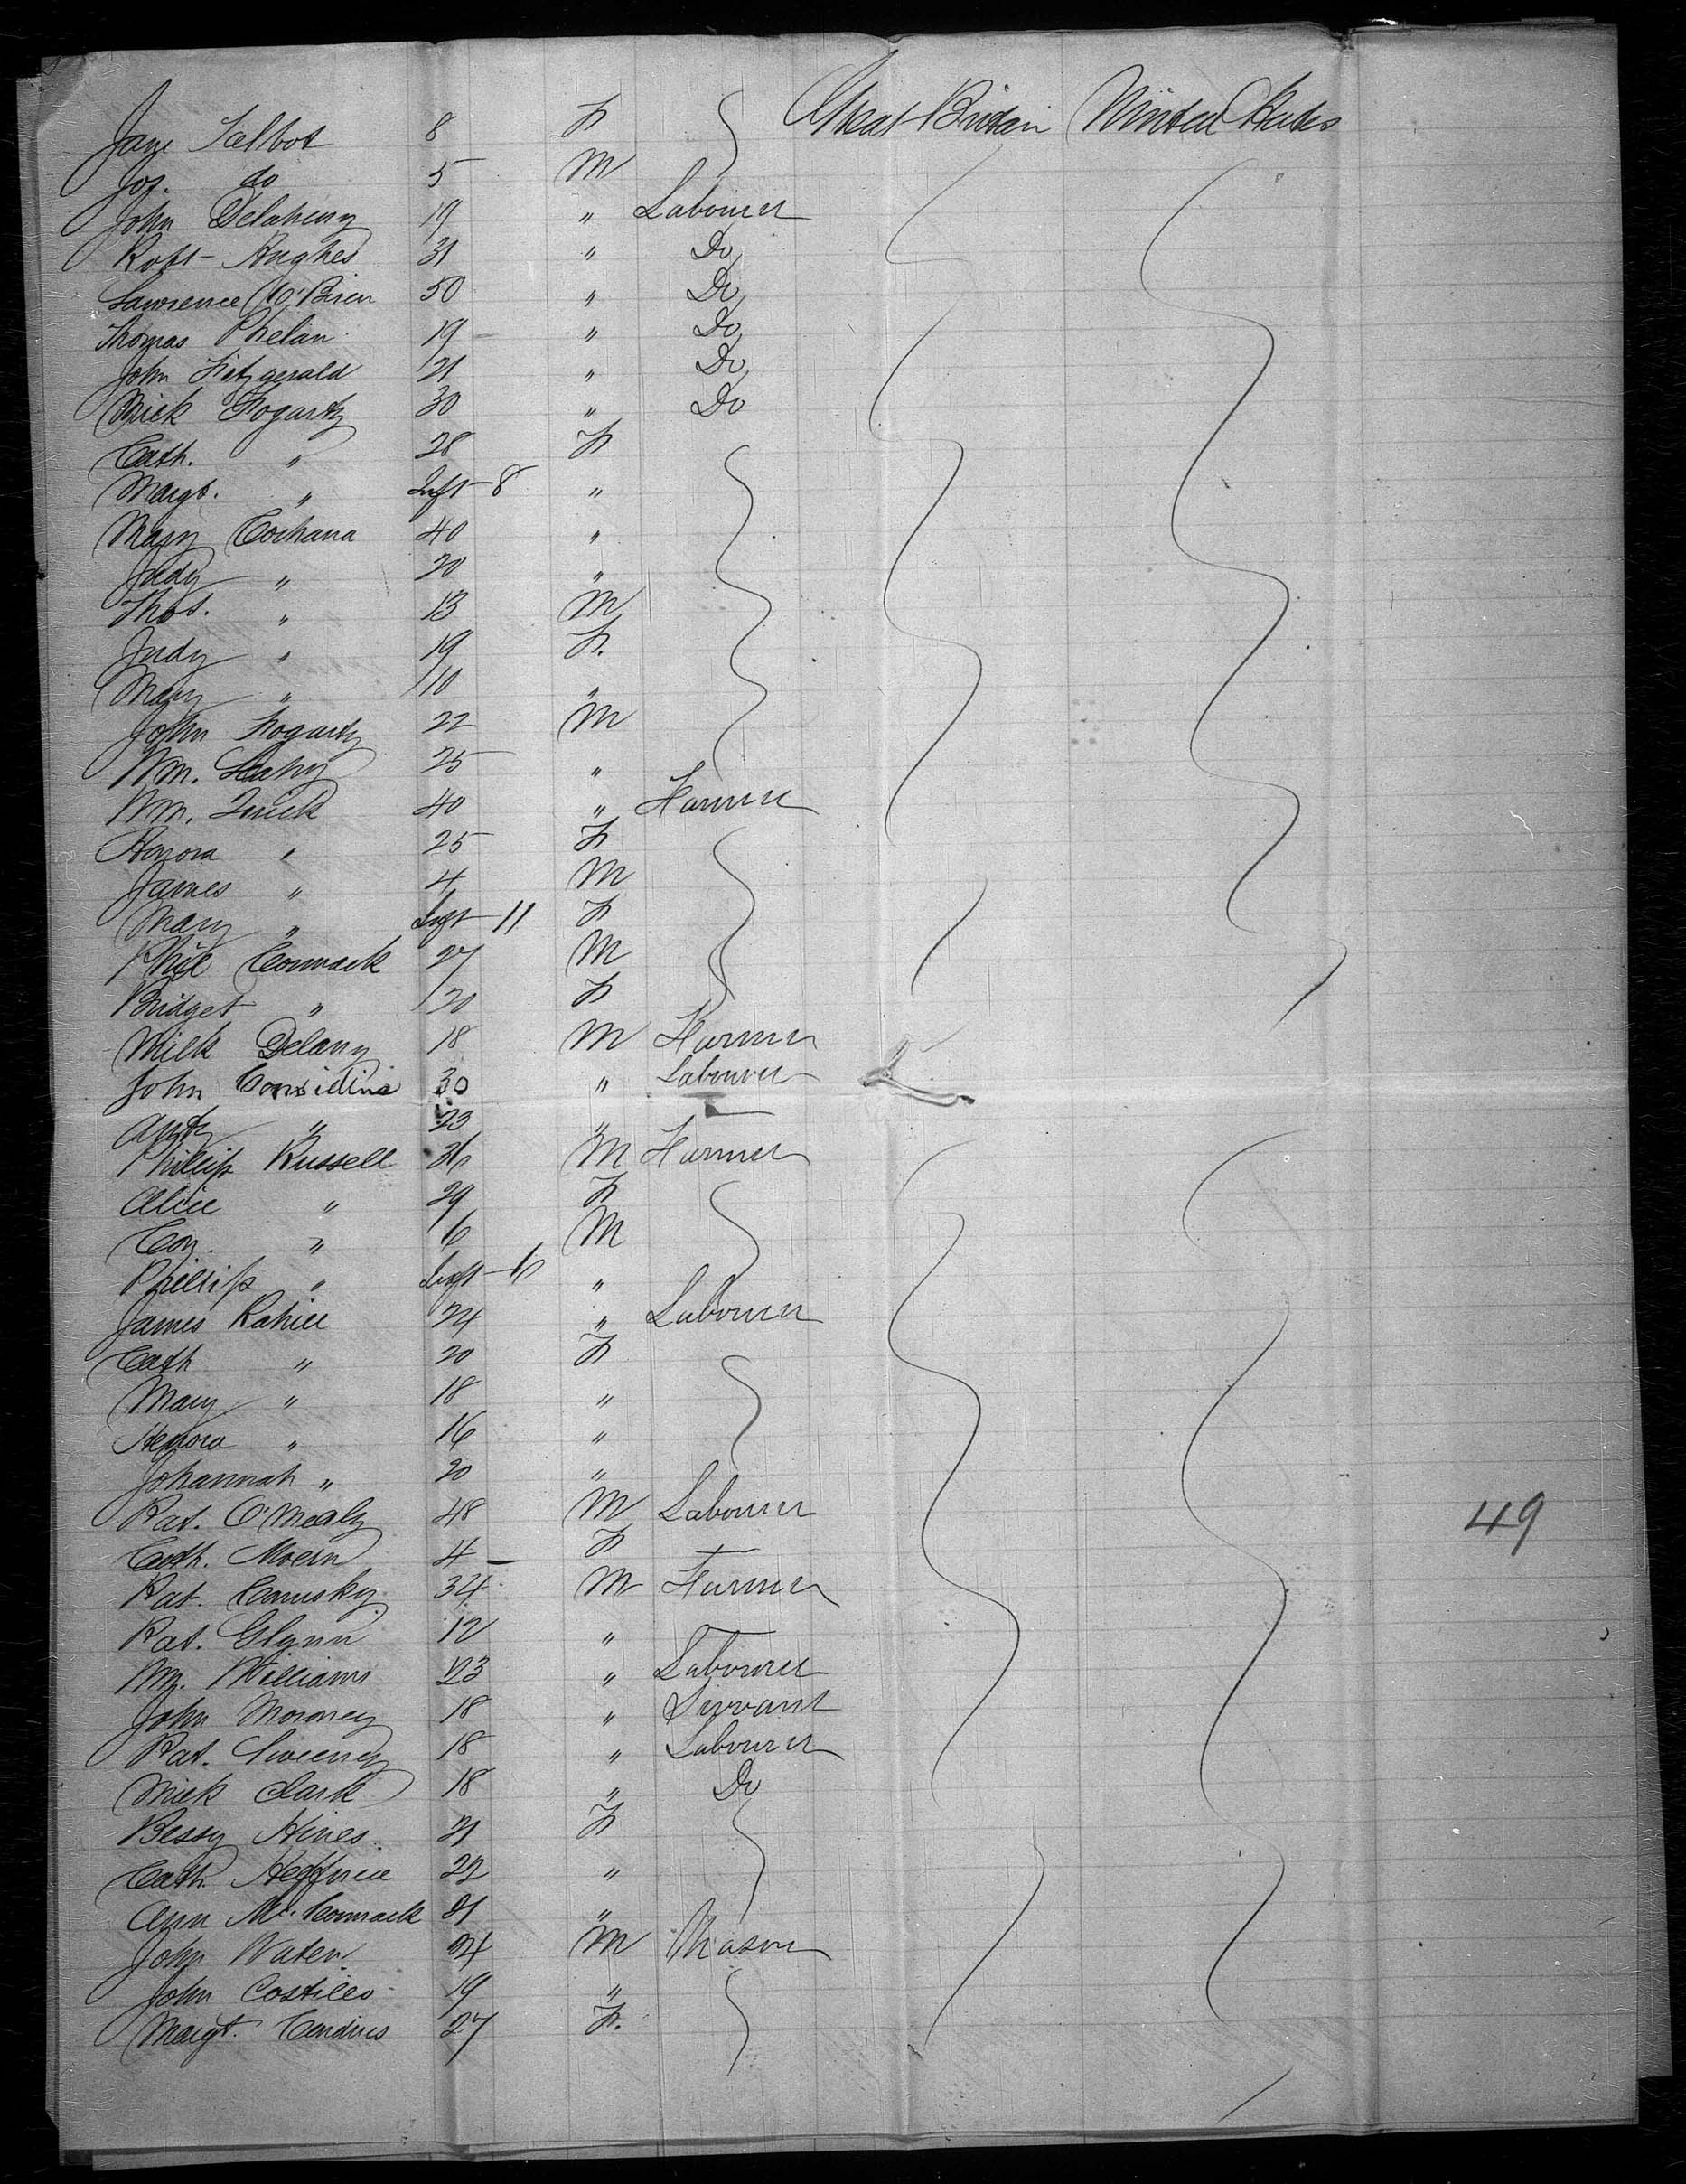 Jane Talbot 8 F Great Britain United States
Jos. do 5 M
John Delaheny 19 " Labourer
Robt Hughes 31 " Do
Lawrence O'Brien 50 " Do
Thomas Phelan 19 " Do
John Fitzgerald 21 " Do
Mick Fogarty 30 " Do
Cath. " 28 F
Margt. " Inft 8 "
Mary Cochana 40 "
Judy " 20 "
Thos. " 13 M
Judy " 19 F.
Mary " 10 "
John Fogarty 22 M
Wm. Leahy 25 "
Wm. Quick 40 " Farmer
Honora " 25 F
James " 4 M
Mary " Inft 11 F
Phil Cormack 27 M
Bridget " 20 F
Mick Delany 18 M Farmer
John Considine 30 " Labourer
Andy " 23 "
Phillip Russell 36 M Farmer
Alice " 29 F
Con. " 6 M
Phillip " Inft 6 "
James Rahill 24 " Labourer
Cath " 20 F
Mary " 18 "
Henora " 16 "
Johannah " 20 "
Pat. O'Mealy 48 M Labourer
Cath. 4 F
Pat. Comisky 34 M Farmer
Pat. Glynn 12 "
Wm. Williams 23 " Labourer
John Moroney 18 " Servant
Pat. Sweeney 18 " Labourer
Mick Clark 18 " Do
Bessy Hines 21 F
Cath. 22 "
Ann McCormack 21 "
John Water 24 M Mason
John Costillo 19 "
Margt. 27 F.
49